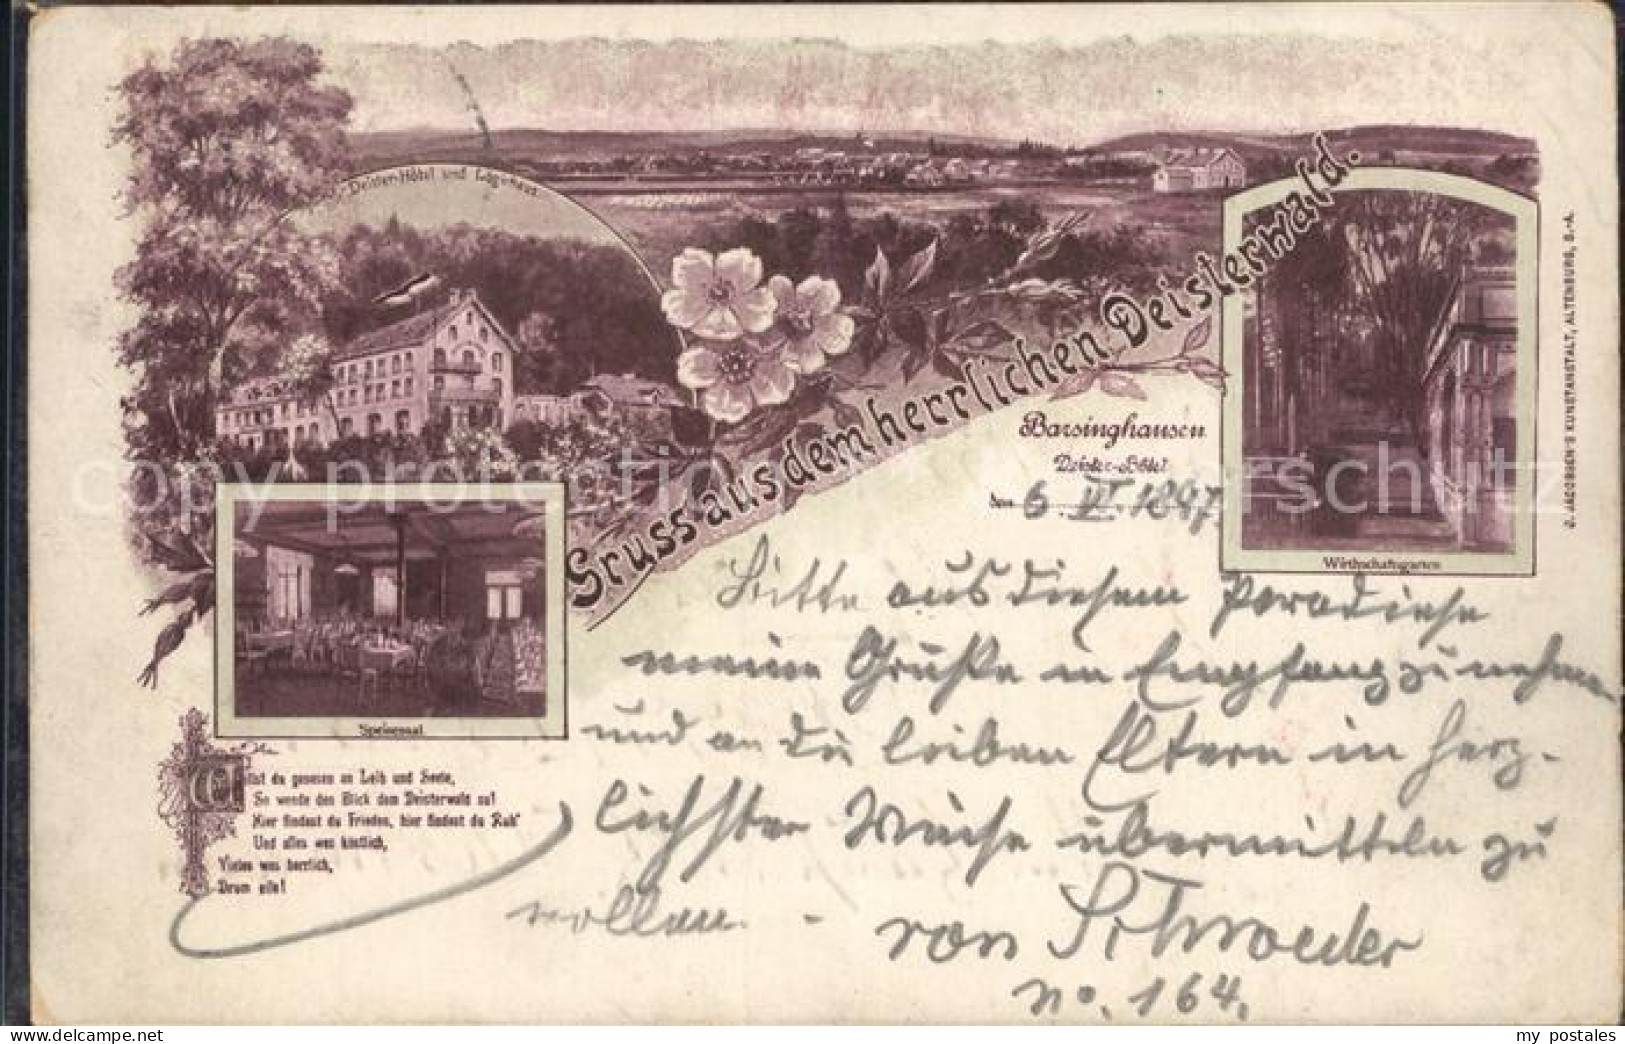 Deister-Hôtel und Logirhaus
Gruss aus dem herrlichen Deisterwald.
Barsinghausen
Deister-Hôtel
den 6. VI. 1897.
Wirthschaftsgarten
Speisesaal
J. JACOBSEN'S KUNSTANSTALT, ALTENBURG, S.-A.
Bitte aus diesem Paradiese
meine Grüße in Empfang zu nehmen
und an die lieben Eltern in herz-
lichster Weise übermitteln zu
wollen. -
von Schroeder
No. 164.
Willst du genesen an Leib und Seele,
So wende den Blick dem Deisterwald zu!
Hier findest du Frieden, hier findest du Ruh'
Und alles was köstlich,
Vieles was herrlich,
Drum eile!
copy protection Kopierschutz
my postales